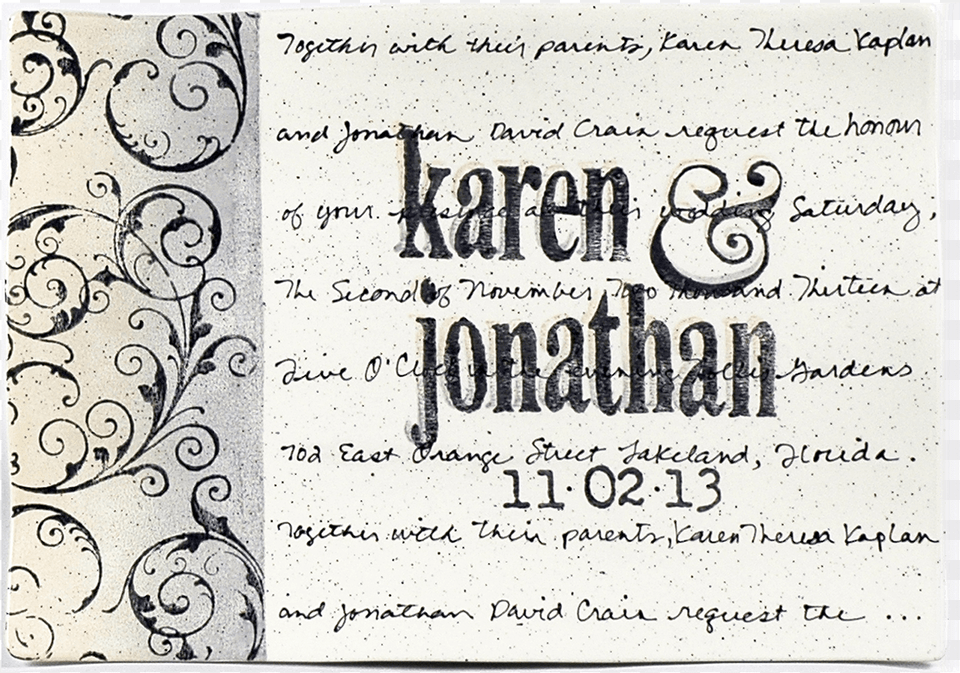 Together with their parents, Karen Theresa Kaplan
and Jonathan David Crain request the honour
karen &
of your presence at their wedding Saturday,
The Second of November Two Thousand Thirteen at
jonathan
Five O'Clock in the evening Hollis Gardens
702 East Orange Street Lakeland, Florida.
11·02·13
Together with their parents, Karen Theresa Kaplan
and Jonathan David Crain request the ...